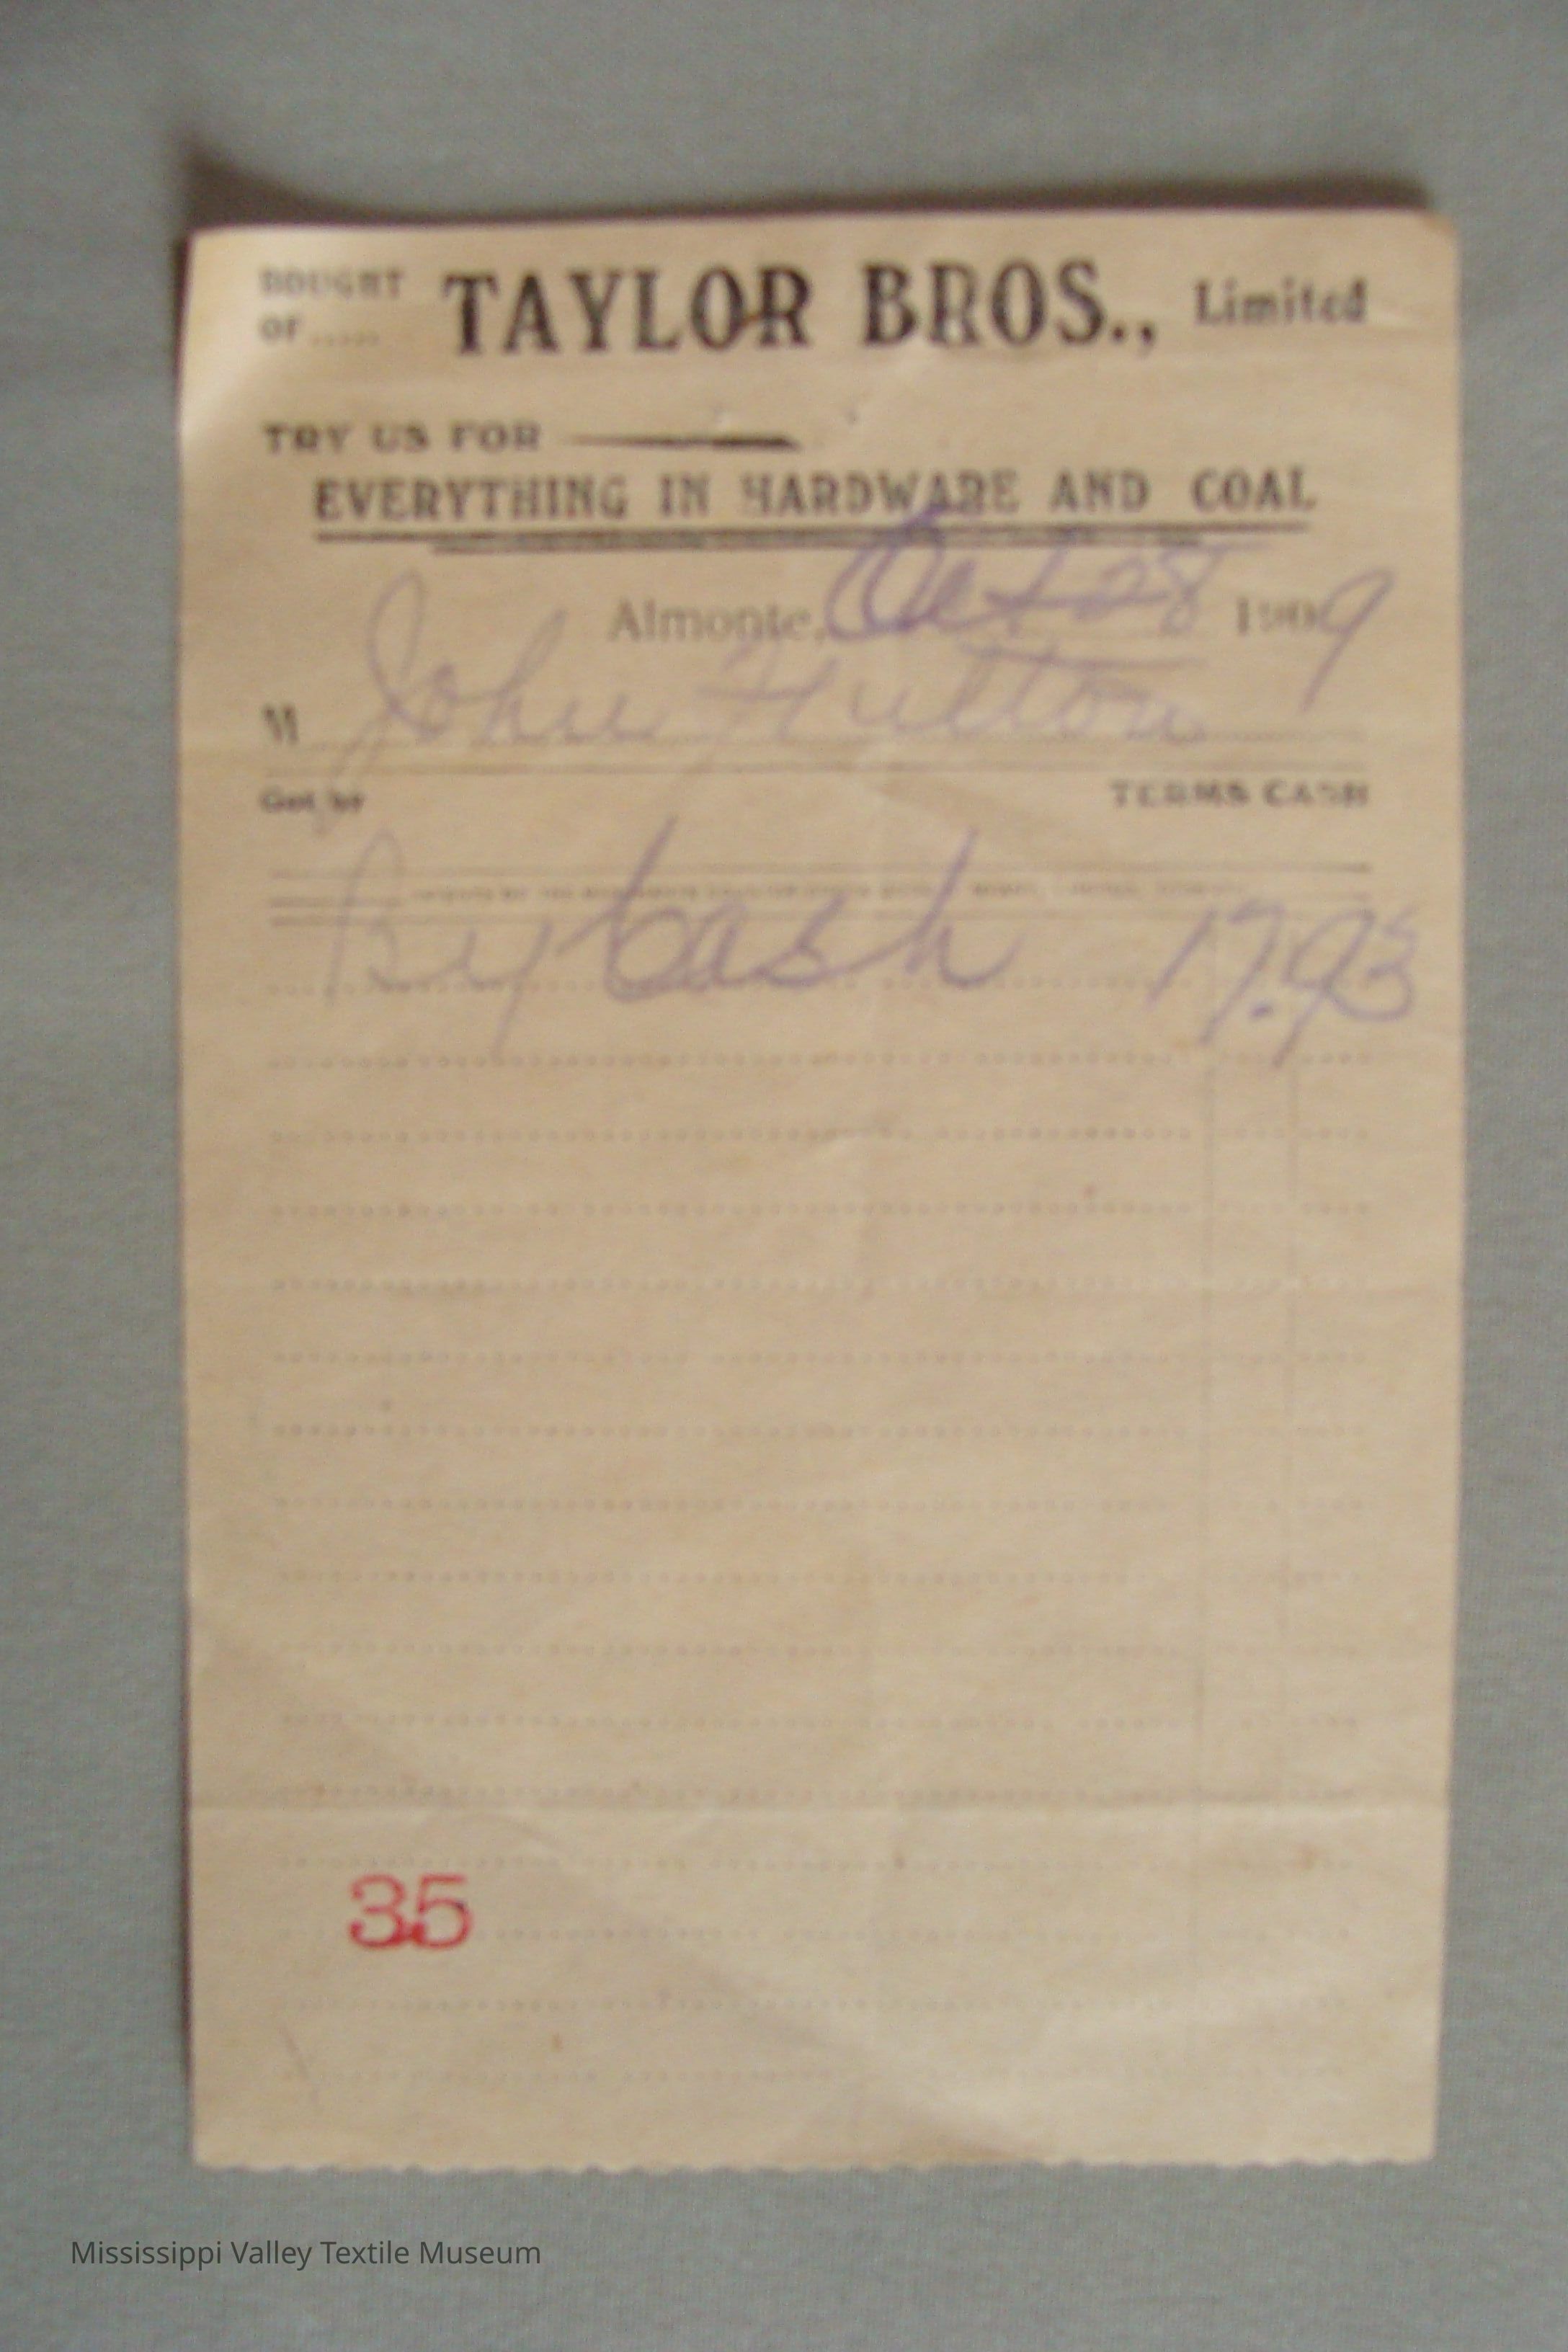 BOUGHT OF..... TAYLOR BROS., Limited
TRY US FOR
EVERYTHING IN HARDWARE AND COAL
Almonte, Oct 28 1909
M John Fulton
Got by TERMS CASH
By Cash 17.93
35
Mississippi Valley Textile Museum